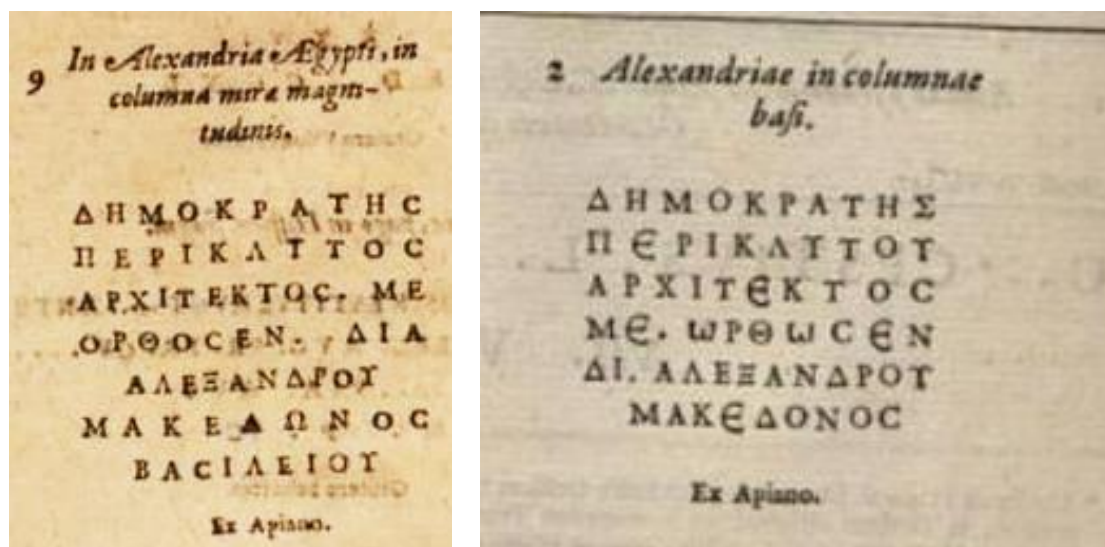 9 In Alexandria Ægypti, in
columna mira magni-
tudinis.
ΔΗΜΟΚΡΑΤΗC
ΠΕΡΙΚΛΥΤΟC
ΑΡΧΙΤΕΚΤΟC. ΜΕ
ΟΡΘΟCΕΝ. ΔΙΑ
ΑΛΕΞΑΝΔΡΟΥ
ΜΑΚΕΔΩΝΟC
ΒΑCΙΛΕΙΟΥ
Ex Apiano.
2 Alexandriae in columnae
basi.
ΔΗΜΟΚΡΑΤΗΣ
ΠЄΡΙΚΛΥΤΟΥ
ΑΡΧΙΤЄΚΤΟC
ΜЄ. ωΡΘωCЄΝ
ΔΙ. ΑΛΕΞΑΝΔΡΟΥ
ΜΑΚЄΔΟΝΟC
Ex Apiano.